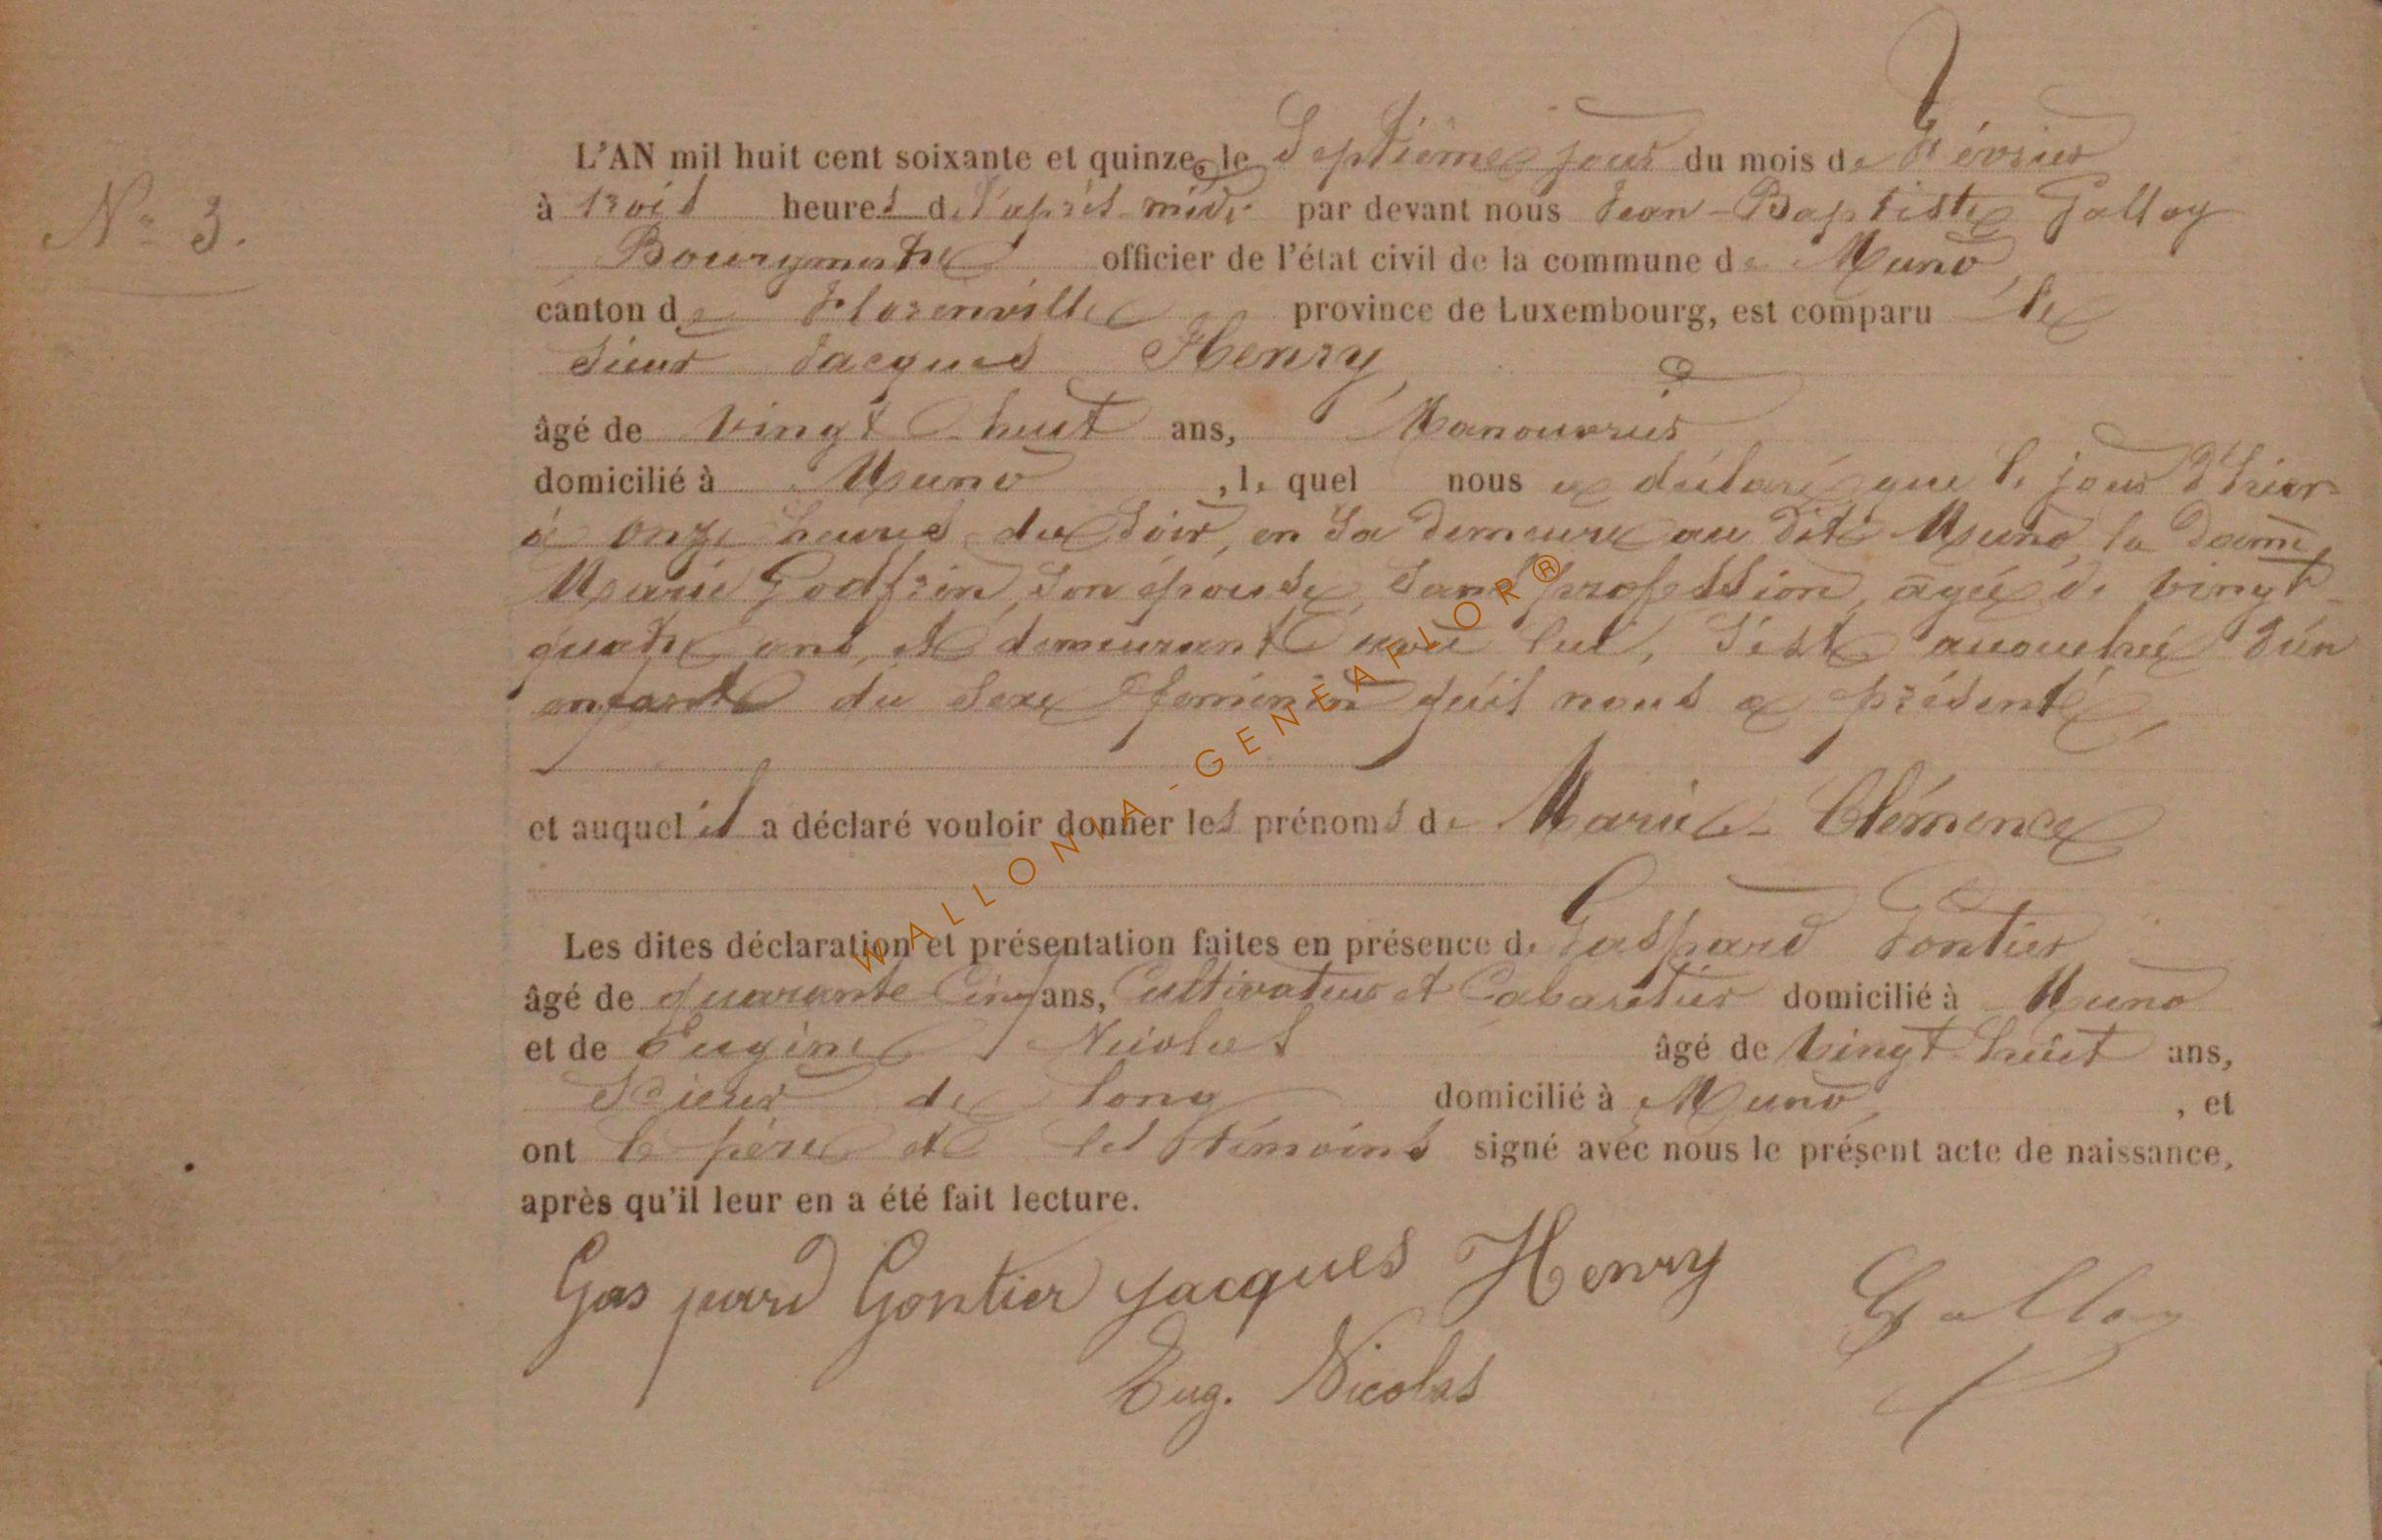 N° 3.
L'AN mil huit cent soixante et quinze, le Septième jour du mois de Février
à trois heures de l'après-midi par devant nous Jean-Baptiste Galloy
Bourgmestre officier de l'état civil de la commune de Muno,
canton de Florenville province de Luxembourg, est comparu le
Sieur Jacques Henry,
âgé de vingt huit ans, Manouvrier
domicilié à Muno, lequel nous a déclaré que le jour d'hier
à onze heures du soir, en sa demeure au dit Muno, la dame
Marie Godfrin, son épouse, sans profession, agée de vingt-
quatre ans, et demeurant avec lui, s'est accouchée d'un
enfant du sexe féminin qu'il nous a présenté,
et auquel il a déclaré vouloir donner les prénoms de Marie-Clémence
Les dites déclaration et présentation faites en présence de Gaspard Gontier
âgé de quarante cinq ans, Cultivateur et Cabaretier domicilié à Muno
et de Eugène Nicolas âgé de vingt huit ans,
Scieur de long domicilié à Muno, et
ont le père et les témoins signé avec nous le présent acte de naissance,
après qu'il leur en a été fait lecture.
Gaspard Gontier Jacques Henry Galloy
Eug. Nicolas
WALLONIA-GENEAFLOR®